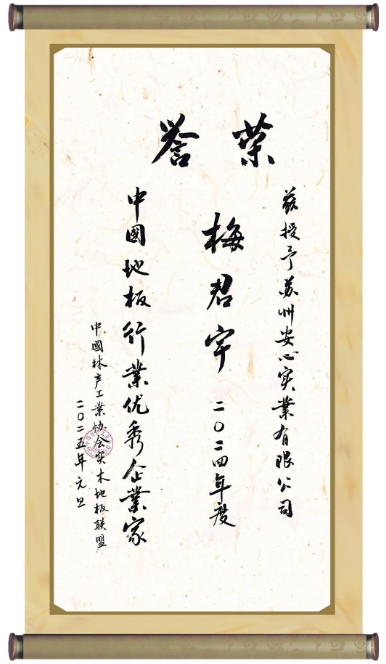 荣誉
兹授予苏州安心实业有限公司
梅君宇 二〇二四年度
中國地板行業优秀企業家
中國林产工業协会实木地板联盟
二〇二五年元旦